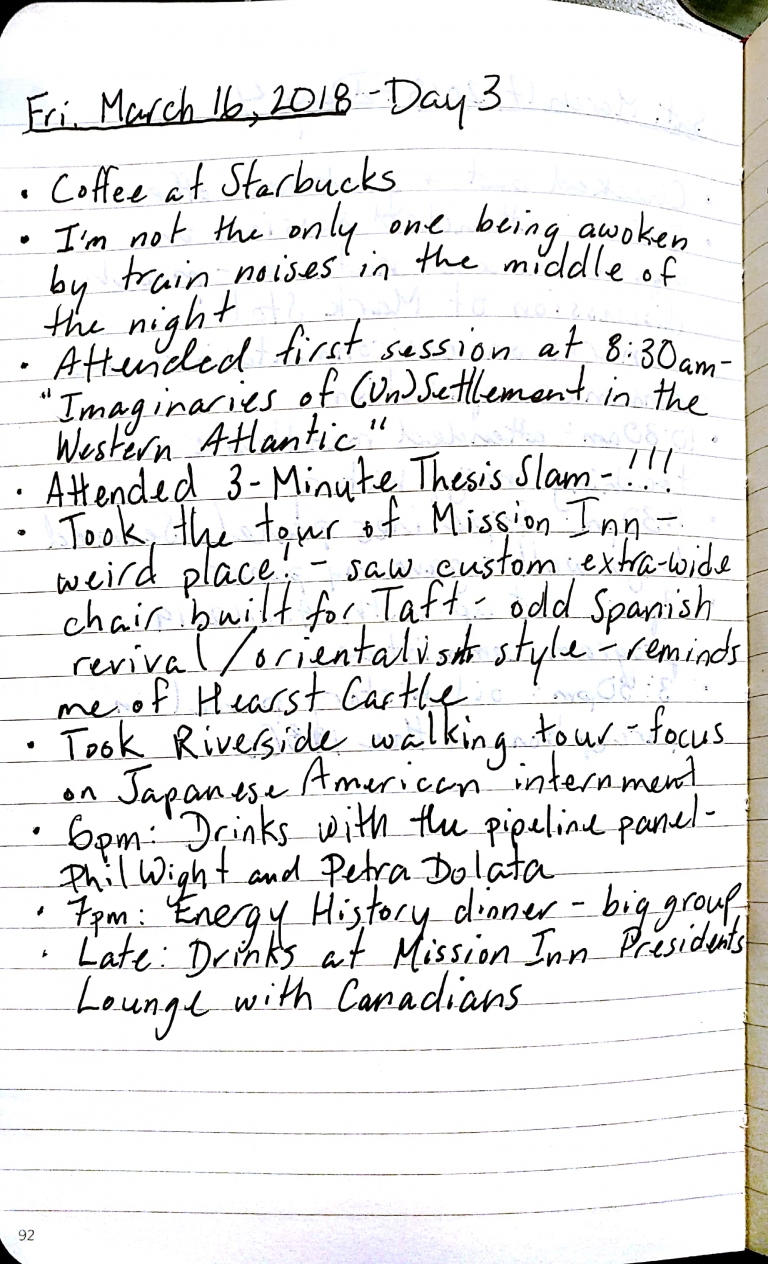 Fri. March 16, 2018 - Day 3
• Coffee at Starbucks
• I'm not the only one being awoken
by train noises in the middle of
the night
• Attended first session at 8:30am -
"Imaginaries of (Un)Settlement in the
Western Atlantic"
• Attended 3-Minute Thesis Slam - !!!
• Took the tour of Mission Inn -
weird place! - saw custom extra-wide
chair built for Taft - odd Spanish
revival/orientalist style - reminds
me of Hearst Castle
• Took Riverside walking tour - focus
on Japanese American internment
• 6pm: Drinks with the pipeline panel -
Phil Wight and Petra Dolata
• 7pm: Energy History dinner - big group
• Late: Drinks at Mission Inn Presidents
Lounge with Canadians
92